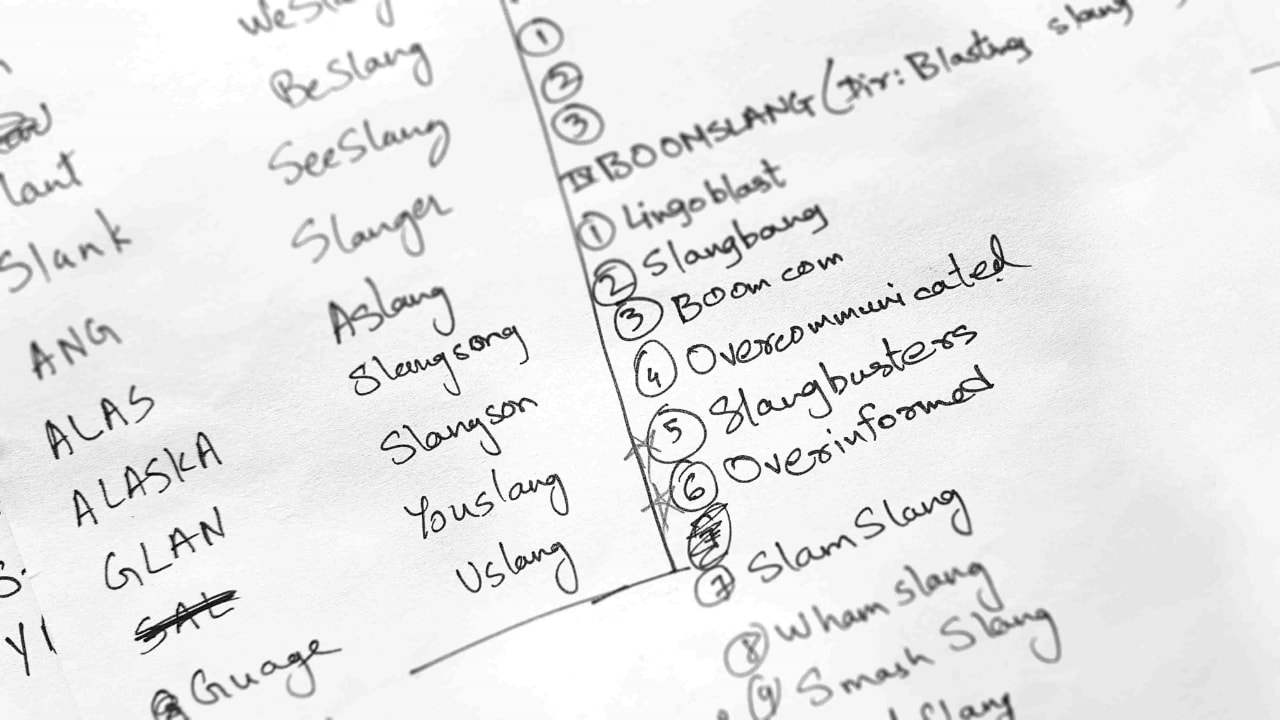 WeSlang
BeSlang
SeeSlang
Slanger
Aslang
Slangsong
Slangson
Youslang
Uslang
lant
Slank
ANG
ALAS
ALASKA
GLAN
SAL
Guage
S.
YI
①
②
③
IV BOOMSLANG (Dir: Blasting slang
① Lingoblast
② Slangbang
③ Boom com
④ Overcommunicated
⑤ Slangbusters
⑥ Overinformed
⑦ Slam Slang
⑧ Wham slang
⑨ Smash Slang
Slang